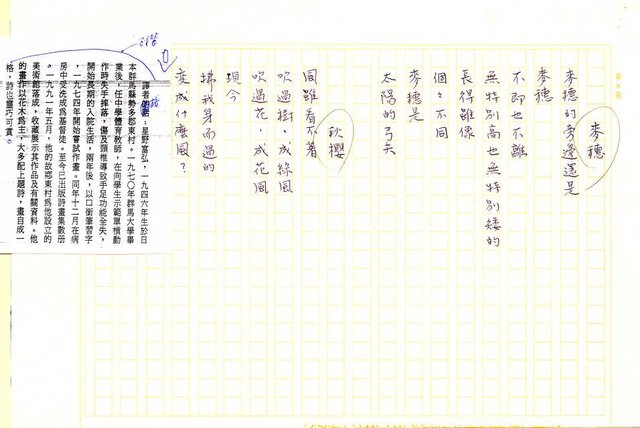 麥穗
麥穗的旁邊還是
麥穗
不即也不離
無特別高也無特別矮的
長得雖像
個々不同
麥穗是
太陽的弓矢
秋櫻
風雖看不着
吹過樹，成綠風
吹過花，成花風
現今
掃我身而過的
變成什麼風？
譯者：星野富弘，一九四六年生於日
本群馬縣勢多郡東村。一九七〇年群馬大學畢
業後，任中學體育教師，在向學生示範單槓動
作時失手摔落，傷及頸椎導致手足功能全失，
開始長期的入院生活，兩年後，以口銜筆習字
，一九七四年開始嘗試作畫。同年十二月在病
房中受洗成為基督徒。至今已出版詩畫集數册
。一九九一年五月，他的故鄉東村為他設立的
美術館落成，收藏展示其作品及有關資料。他
的畫作以花木為主，大多配上題詩，畫自成一
格，詩也靈巧可賞。